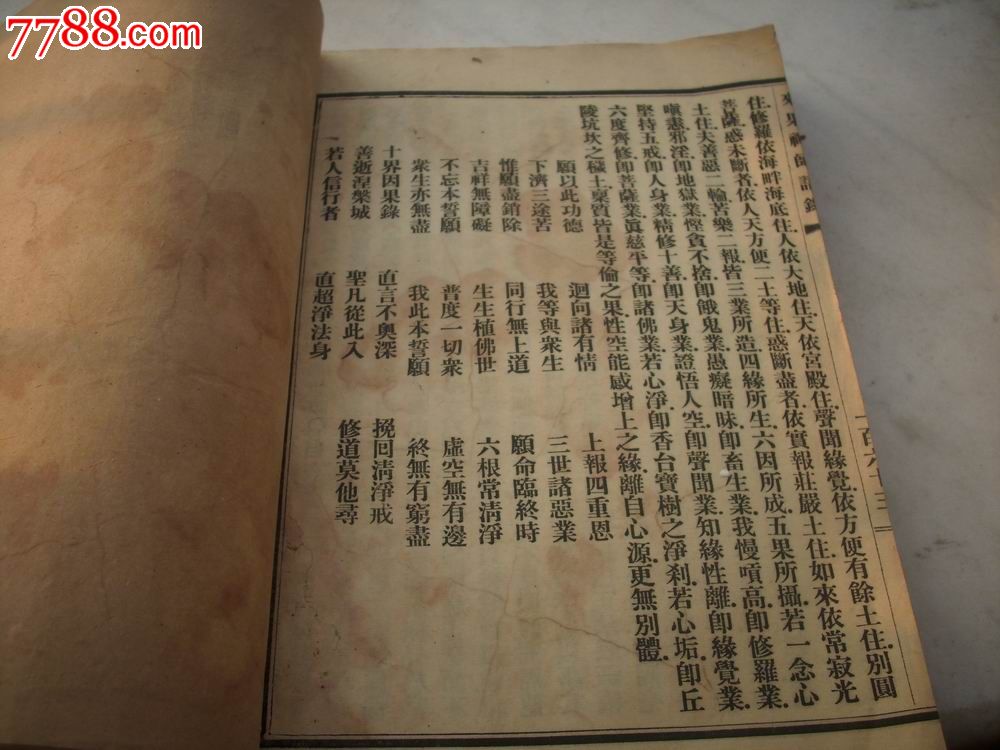 7788.com
來果禪師語錄
一百六十三
住.修羅依海畔海底住.人依大地住.天依宮殿住.聲聞緣覺.依方便有餘土住.別圓
菩薩.惑未斷者.依人天方便二土等住.惑斷盡者.依實報莊嚴土住.如來依常寂光
土住.夫善惡二輪.苦樂二報.皆三業所造.四緣所生.六因所成.五果所攝.若一念心
嗔恚邪淫.卽地獄業.慳貪不捨.卽餓鬼業.愚癡暗昧.卽畜生業.我慢貢高.卽修羅業.
堅持五戒.卽人身業.精修十善.卽天身業.證悟人空.卽聲聞業.知緣性離.卽緣覺業.
六度齊修.卽菩薩業.眞慈平等.卽諸佛業.若心淨.卽香台寶樹之淨刹.若心垢.卽丘
陵坑坎之穢土.稟質皆是等倫之果.性空能感增上之緣.離自心源.更無別體.
願以此功德 迴向諸有情 上報四重恩
下濟三途苦 我等與衆生 三世諸惡業
惟願盡銷除 同行無上道 願命臨終時
吉祥無障礙 生生植佛世 六根常淸淨
不忘本誓願 普度一切衆 虛空無有邊
衆生亦無盡 我此本誓願 終無有窮盡
十界因果錄 直言不奧深 挽回淸淨戒
善逝涅槃城 聖凡從此入 修道莫他尋
若人信行者 直超淨法身